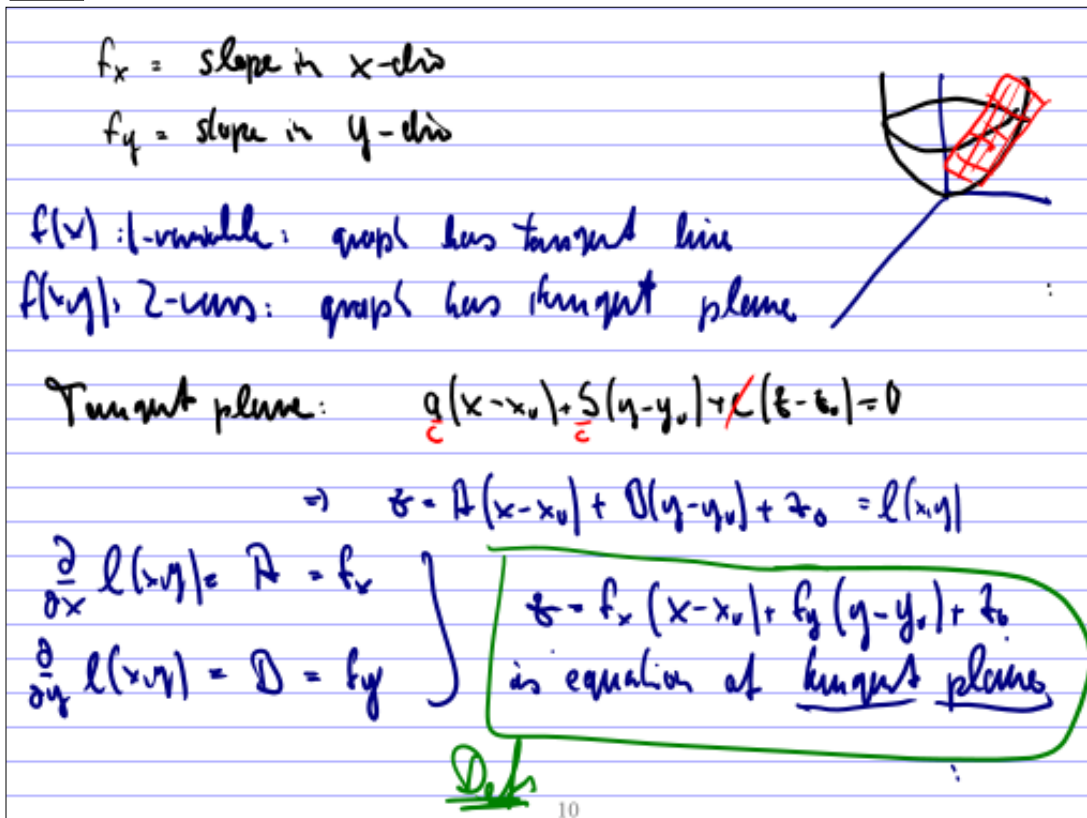 fx = slope in x-dir
fy = slope in y-dir
f(x): 1-variable: graph has tangent line
f(x,y): 2-vars: graph has tangent plane
Tangent plane: a/c (x-x₀) + b/c (y-y₀) + c (z-z₀) = 0
=> z = A(x-x₀) + B(y-y₀) + z₀ = l(x,y)
∂/∂x l(x,y) = A = fx
z = fx (x-x₀) + fy (y-y₀) + z₀
∂/∂y l(x,y) = B = fy
is equation of tangent plane
10